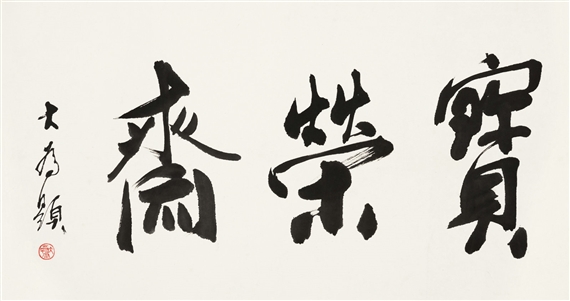 寶榮齋
大為題